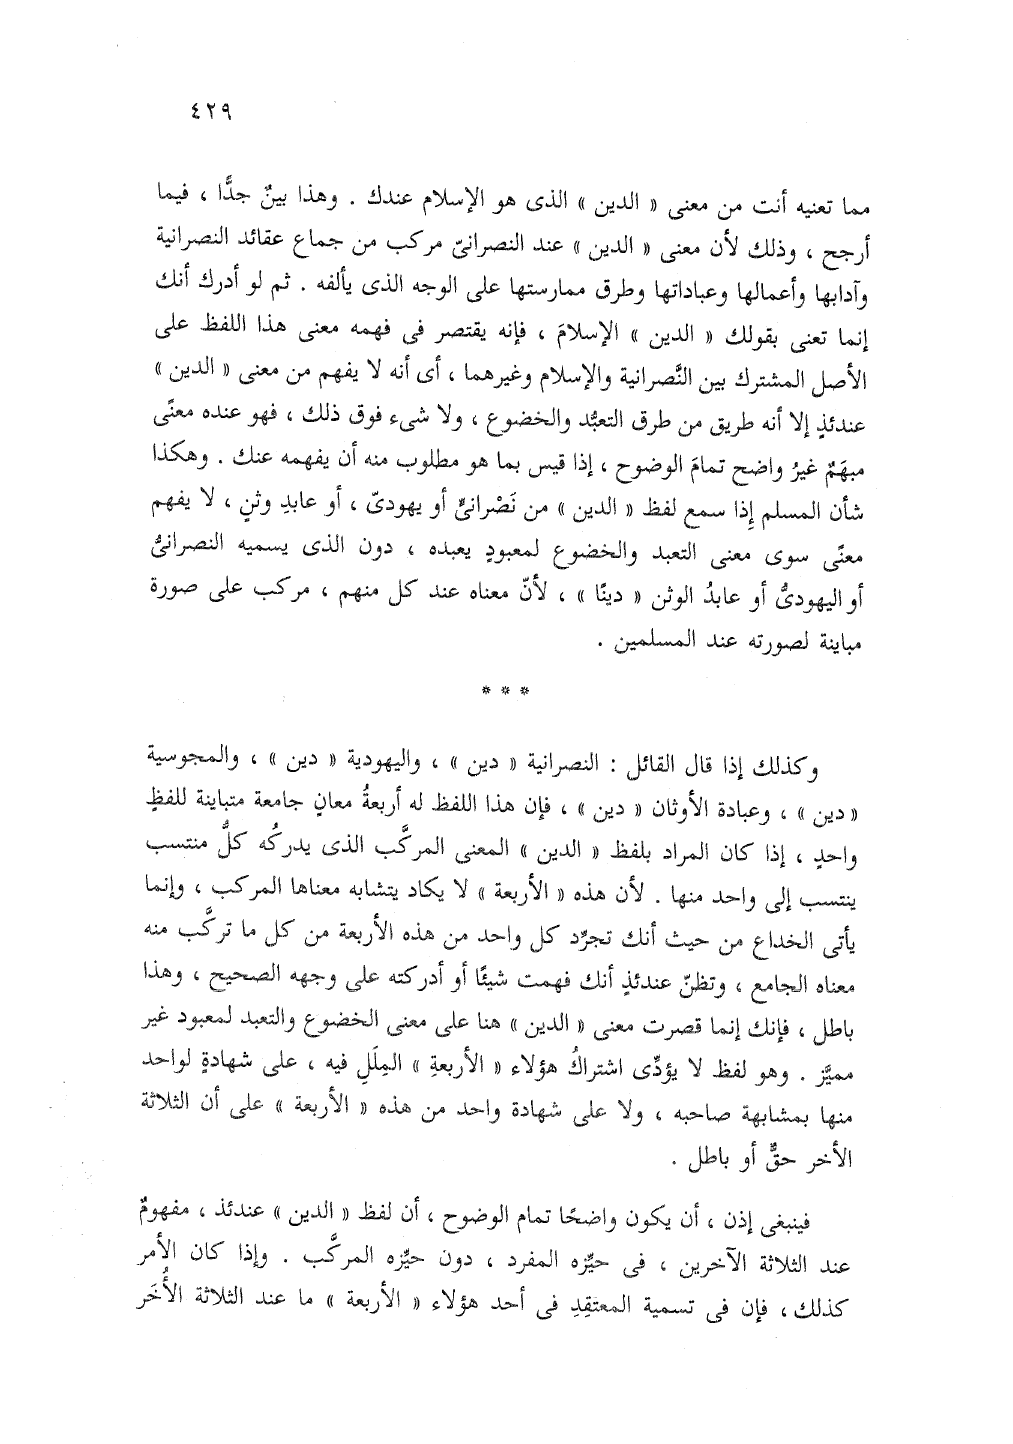 ٤٢٩
مما تعنيه أنت من معنى « الدين » الذى هو الإسلام عندك . وهذا بينٌ جدًّا ، فيما
أرجح ، وذلك لأن معنى « الدين » عند النصرانىّ مركب من جماع عقائد النصرانية
وآدابها وأعمالها وعباداتها وطرق ممارستها على الوجه الذى يألفه . ثم لو أدرك أنك
إنما تعنى بقولك « الدين » الإسلامَ ، فإنه يقتصر فى فهمه معنى هذا اللفظ على
الأصل المشترك بين النَّصرانية والإسلام وغيرهما ، أى أنه لا يفهم من معنى « الدين »
عندئذٍ إلا أنه طريق من طرق التعبُّد والخضوع ، ولا شىء فوق ذلك ، فهو عنده معنًى
مبهَمٌ غيرُ واضح تمامَ الوضوح ، إذا قيس بما هو مطلوب منه أن يفهمه عنك . وهكذا
شأن المسلم إِذا سمع لفظ « الدين » من نَصْرانىٍّ أو يهودىّ ، أو عابدِ وثنٍ ، لا يفهم
معنًى سوى معنى التعبد والخضوع لمعبودٍ يعبده ، دون الذى يسميه النصرانىُّ
أو اليهودىُّ أو عابدُ الوثن « دينًا » ، لأنّ معناه عند كل منهم ، مركب على صورة
مباينة لصورته عند المسلمين .
* * *
وكذلك إذا قال القائل : النصرانية « دين » ، واليهودية « دين » ، والمجوسية
« دين » ، وعبادة الأوثان « دين » ، فإن هذا اللفظ له أربعةُ معانٍ جامعة متباينة للفظٍ
واحدٍ ، إذا كان المراد بلفظ « الدين » المعنى المركَّب الذى يدركُه كلُّ منتسب
ينتسب إلى واحد منها . لأن هذه « الأربعة » لا يكاد يتشابه معناها المركب ، وإنما
يأتى الخداع من حيث أنك تجرِّد كل واحد من هذه الأربعة من كل ما تركَّب منه
معناه الجامع ، وتظنّ عندئذٍ أنك فهمت شيئًا أو أدركته على وجهه الصحيح ، وهذا
باطل ، فإنك إنما قصرت معنى « الدين » هنا على معنى الخضوع والتعبد لمعبود غير
مميَّز . وهو لفظ لا يؤدِّى اشتراكُ هؤلاء « الأربعةِ » المِلَلِ فيه ، على شهادةٍ لواحد
منها بمشابهة صاحبه ، ولا على شهادة واحد من هذه « الأربعة » على أن الثلاثة
الأخر حقٌّ أو باطل .
فينبغى إذن ، أن يكون واضحًا تمام الوضوح ، أن لفظ « الدين » عندئذ ، مفهومٌ
عند الثلاثة الآخرين ، فى حيِّزه المفرد ، دون حيِّزه المركَّب . وإذا كان الأمر
كذلك ، فإن فى تسمية المعتقِدِ فى أحد هؤلاء « الأربعة » ما عند الثلاثة الأُخَر